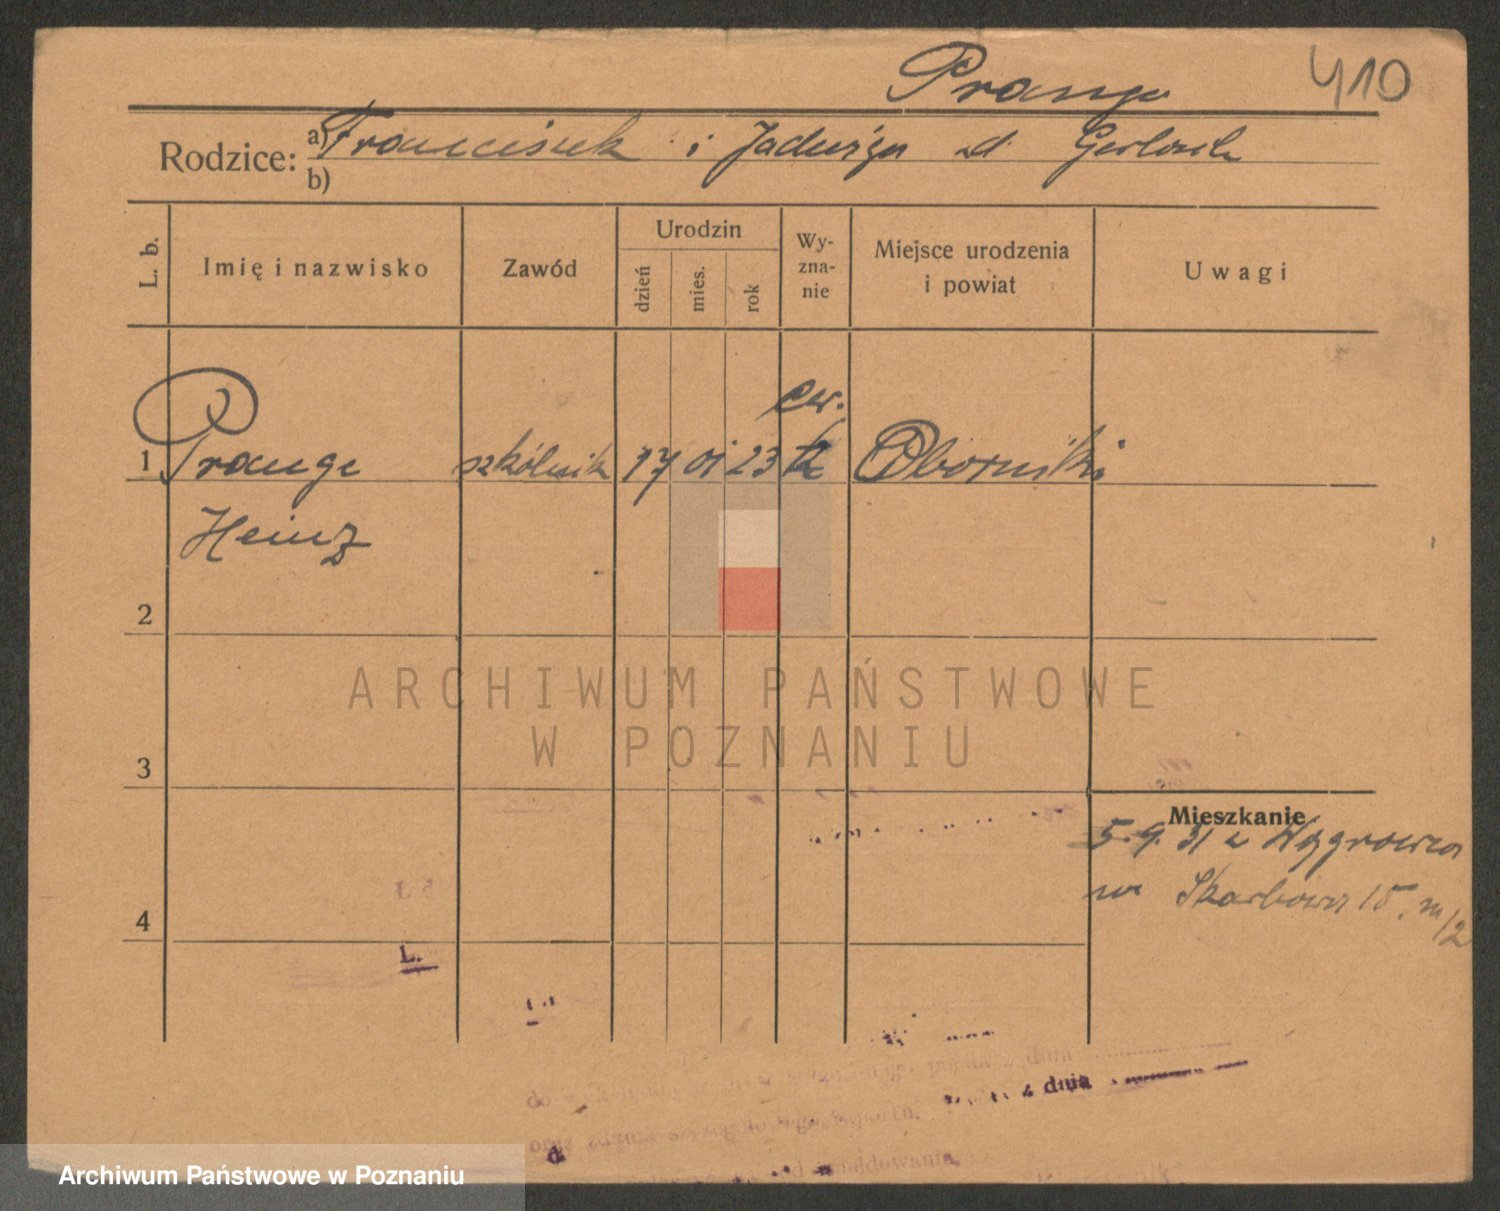 Prange
410
Rodzice: a) Franciszek i Jadwiga d. Gerlach
b)
L. b.
Imię i nazwisko
Zawód
Urodzin
dzień
mies.
rok
Wy-
zna-
nie
Miejsce urodzenia
i powiat
Uwagi
ew.
1 Prange szkólnik 17 01 23 rk Oborniki
Heinz
2
3
4
ARCHIWUM PAŃSTWOWE
W POZNANIU
Mieszkanie
5.9.31 z Wągrowca
Skarbowa 15. m/2
L.
dnia
Archiwum Państwowe w Poznaniu